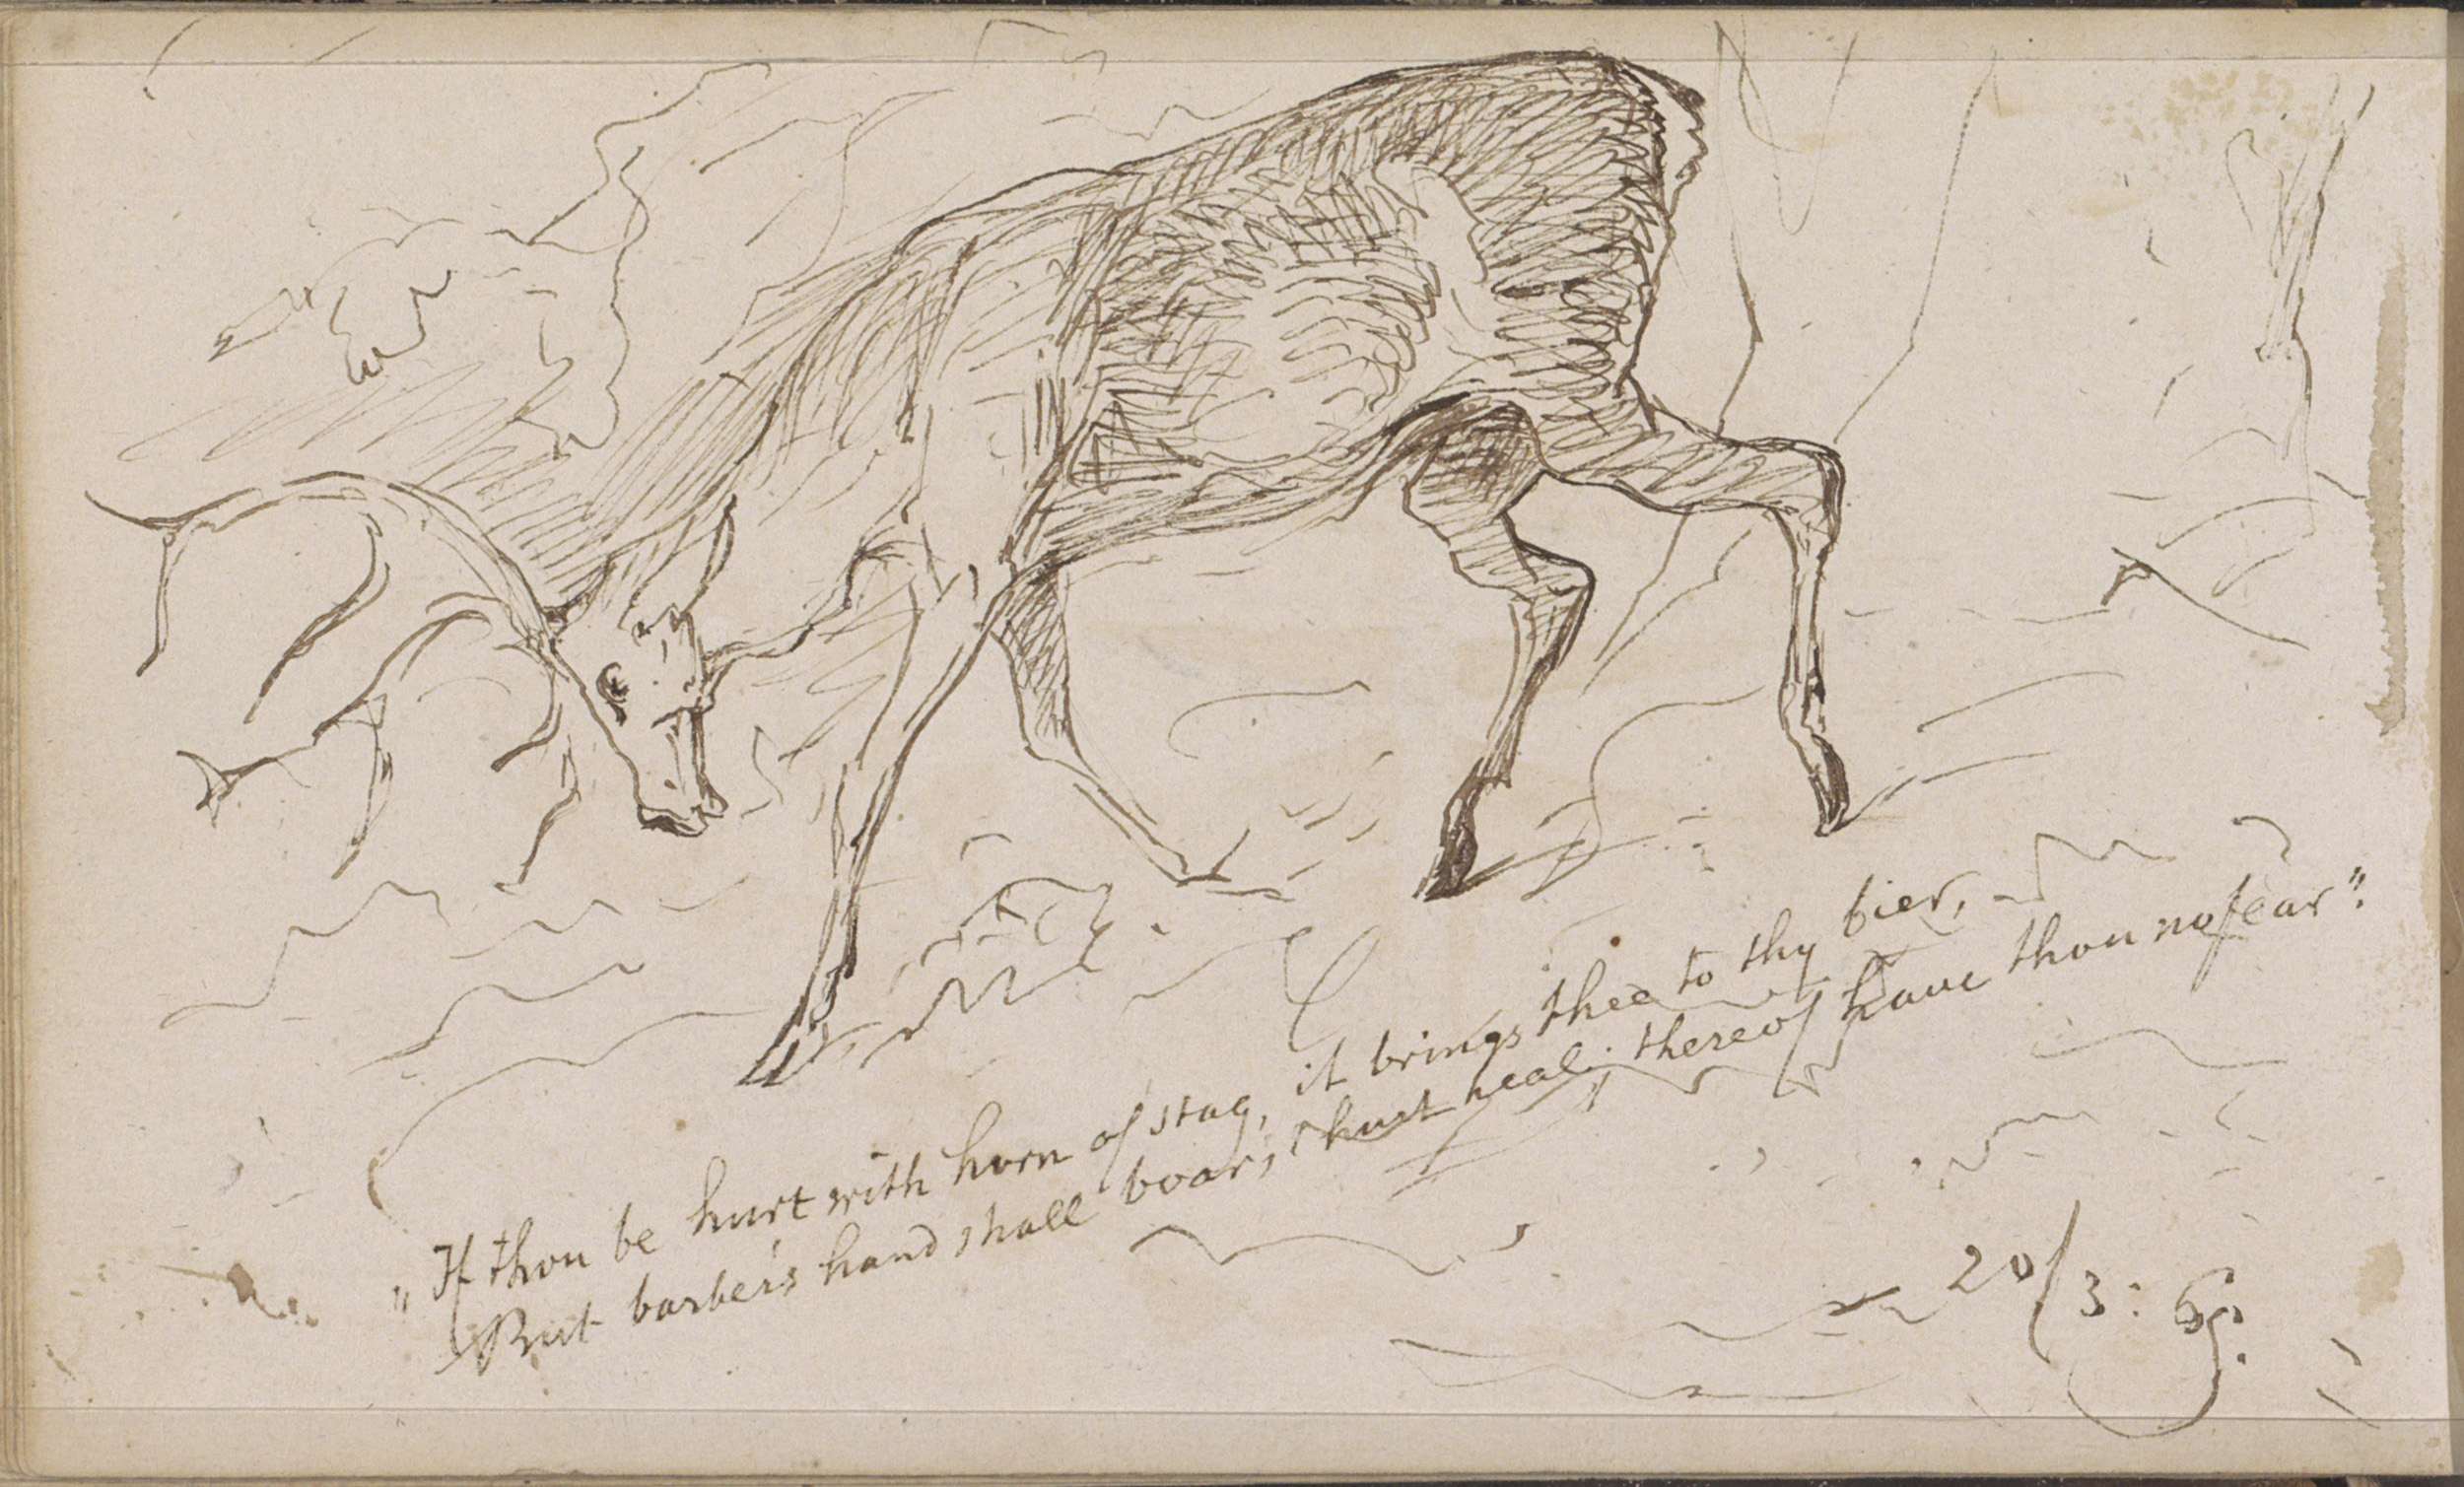 „If thou be hurt with horn of stag, it brings thee to thy bier,
But barber's hand shall boar's hurt heal; thereof have thou no fear".
20/3: